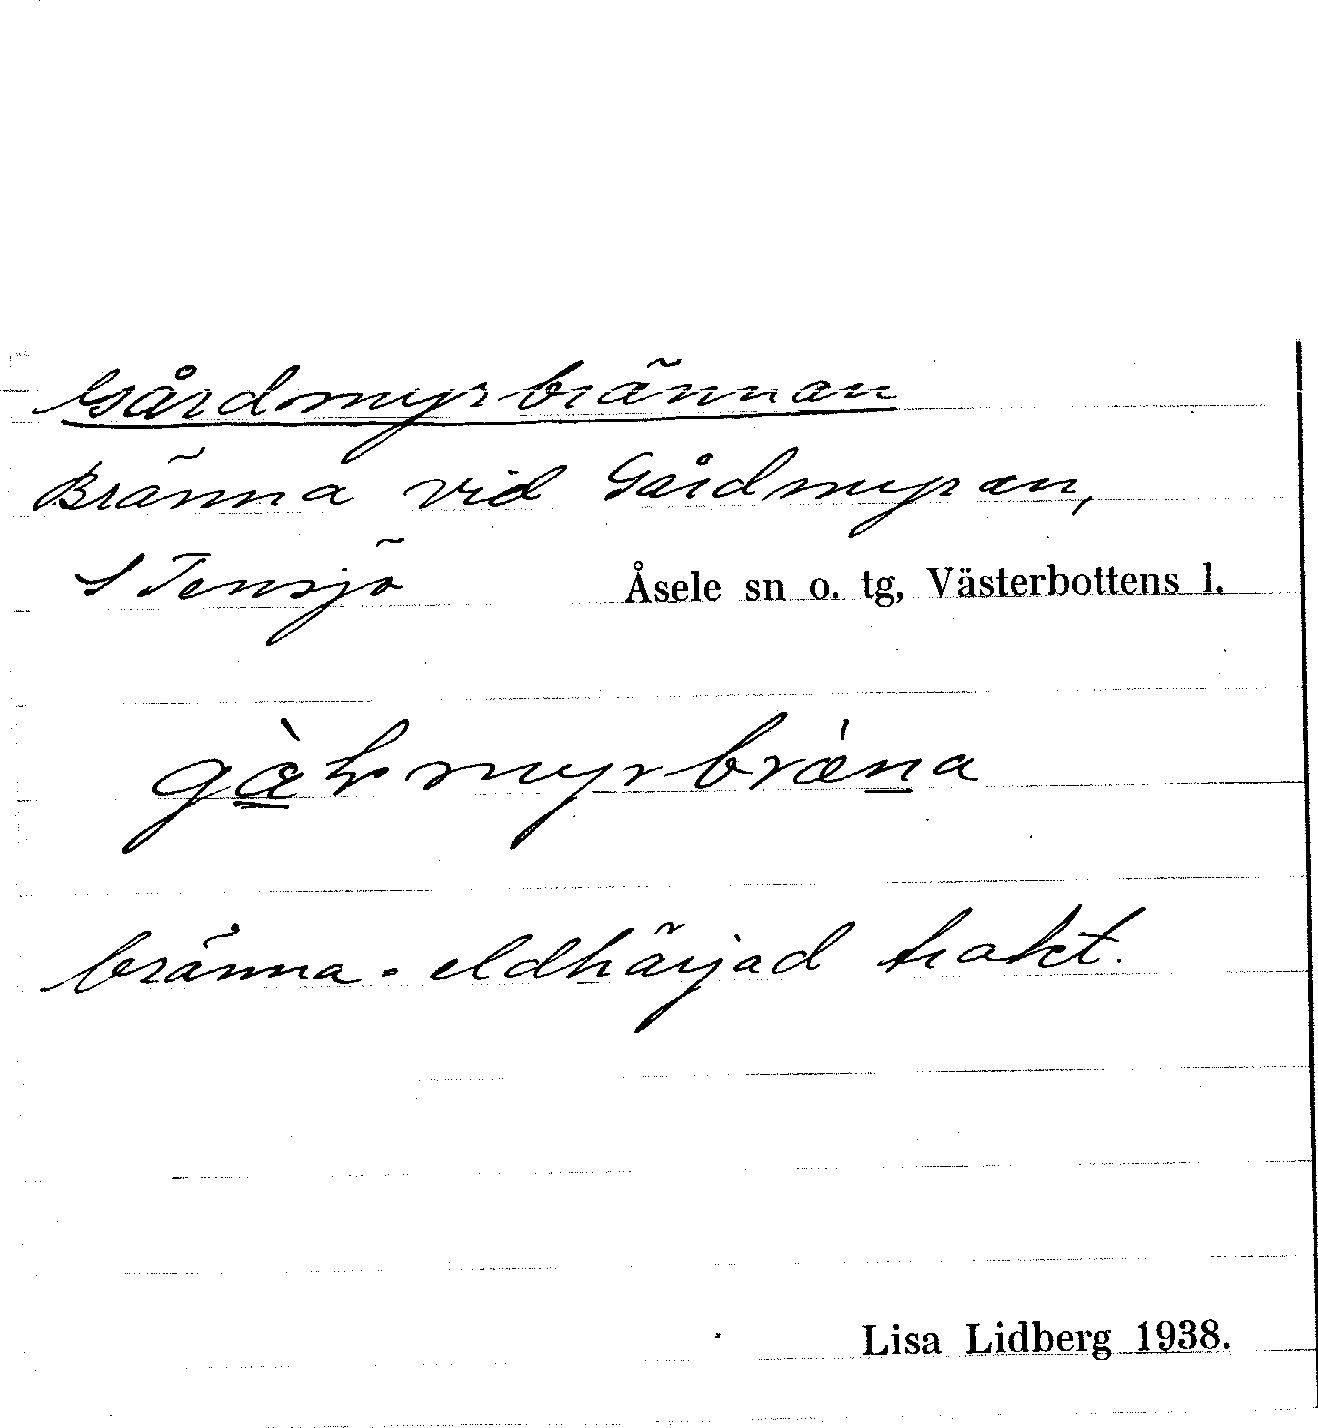 Gårdmyrbrännan
Bränna vid Gårdmyran,
S Tensjö Åsele sn o. tg, Västerbottens l.
bränna - eldhärjad trakt.
Lisa Lidberg 1938.